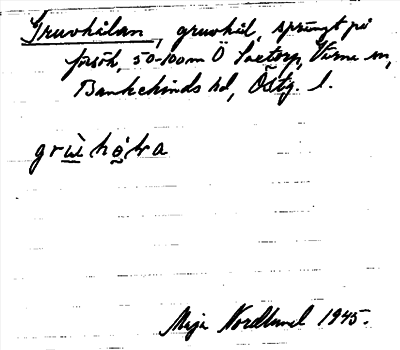 Gruvhålan, gruvhål, sprängt på
försök, 50-100m Ö Sætorp, Värna sn,
Bankekinds hd, Östg. l.
grùhòla
Maja Nordlund 1945.